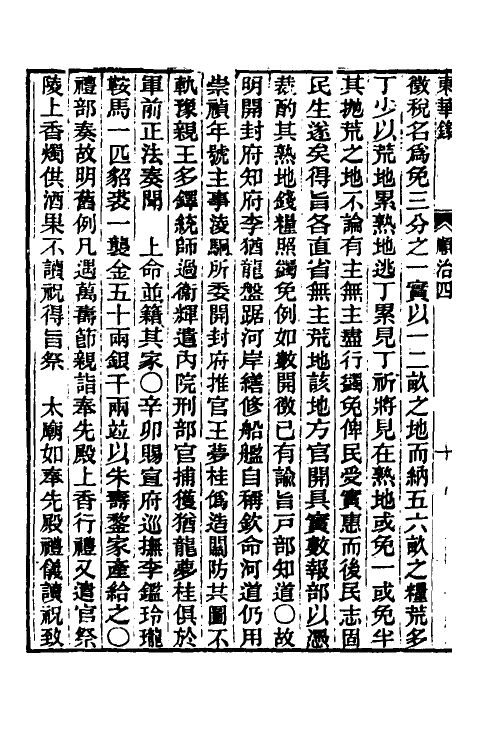 東華錄　順治四　十
徵稅名爲免三分之一實以一二畝之地而納五六畝之糧荒多
丁少以荒地累熟地逃丁累見丁祈將見在熟地或免一或免半
其拋荒之地不論有主無主盡行蠲免俾民受實惠而後民志固
民生遂矣得旨各直省無主荒地該地方官開具實數報部以憑
裁酌其熟地錢糧照蠲免例如數開徵已有諭旨戸部知道○故
明開封府知府李猶龍盤踞河岸繕修船艦自稱欽命河道仍用
崇禎年號主事淩駉所委開封府推官王夢桂僞造關防其圖不
軌豫親王多鐸統師過衞輝遣內院刑部官捕獲猶龍夢桂俱於
軍前正法奏聞　上命並籍其家○辛卯賜宣府巡撫李鑑玲瓏
鞍馬一匹貂裘一襲金五十兩銀千兩竝以朱壽鏊家產給之○
禮部奏故明舊例凡遇萬壽節親詣奉先殿上香行禮又遣官祭
陵上香燭供酒果不讀祝得旨祭　太廟如奉先殿禮儀讀祝致